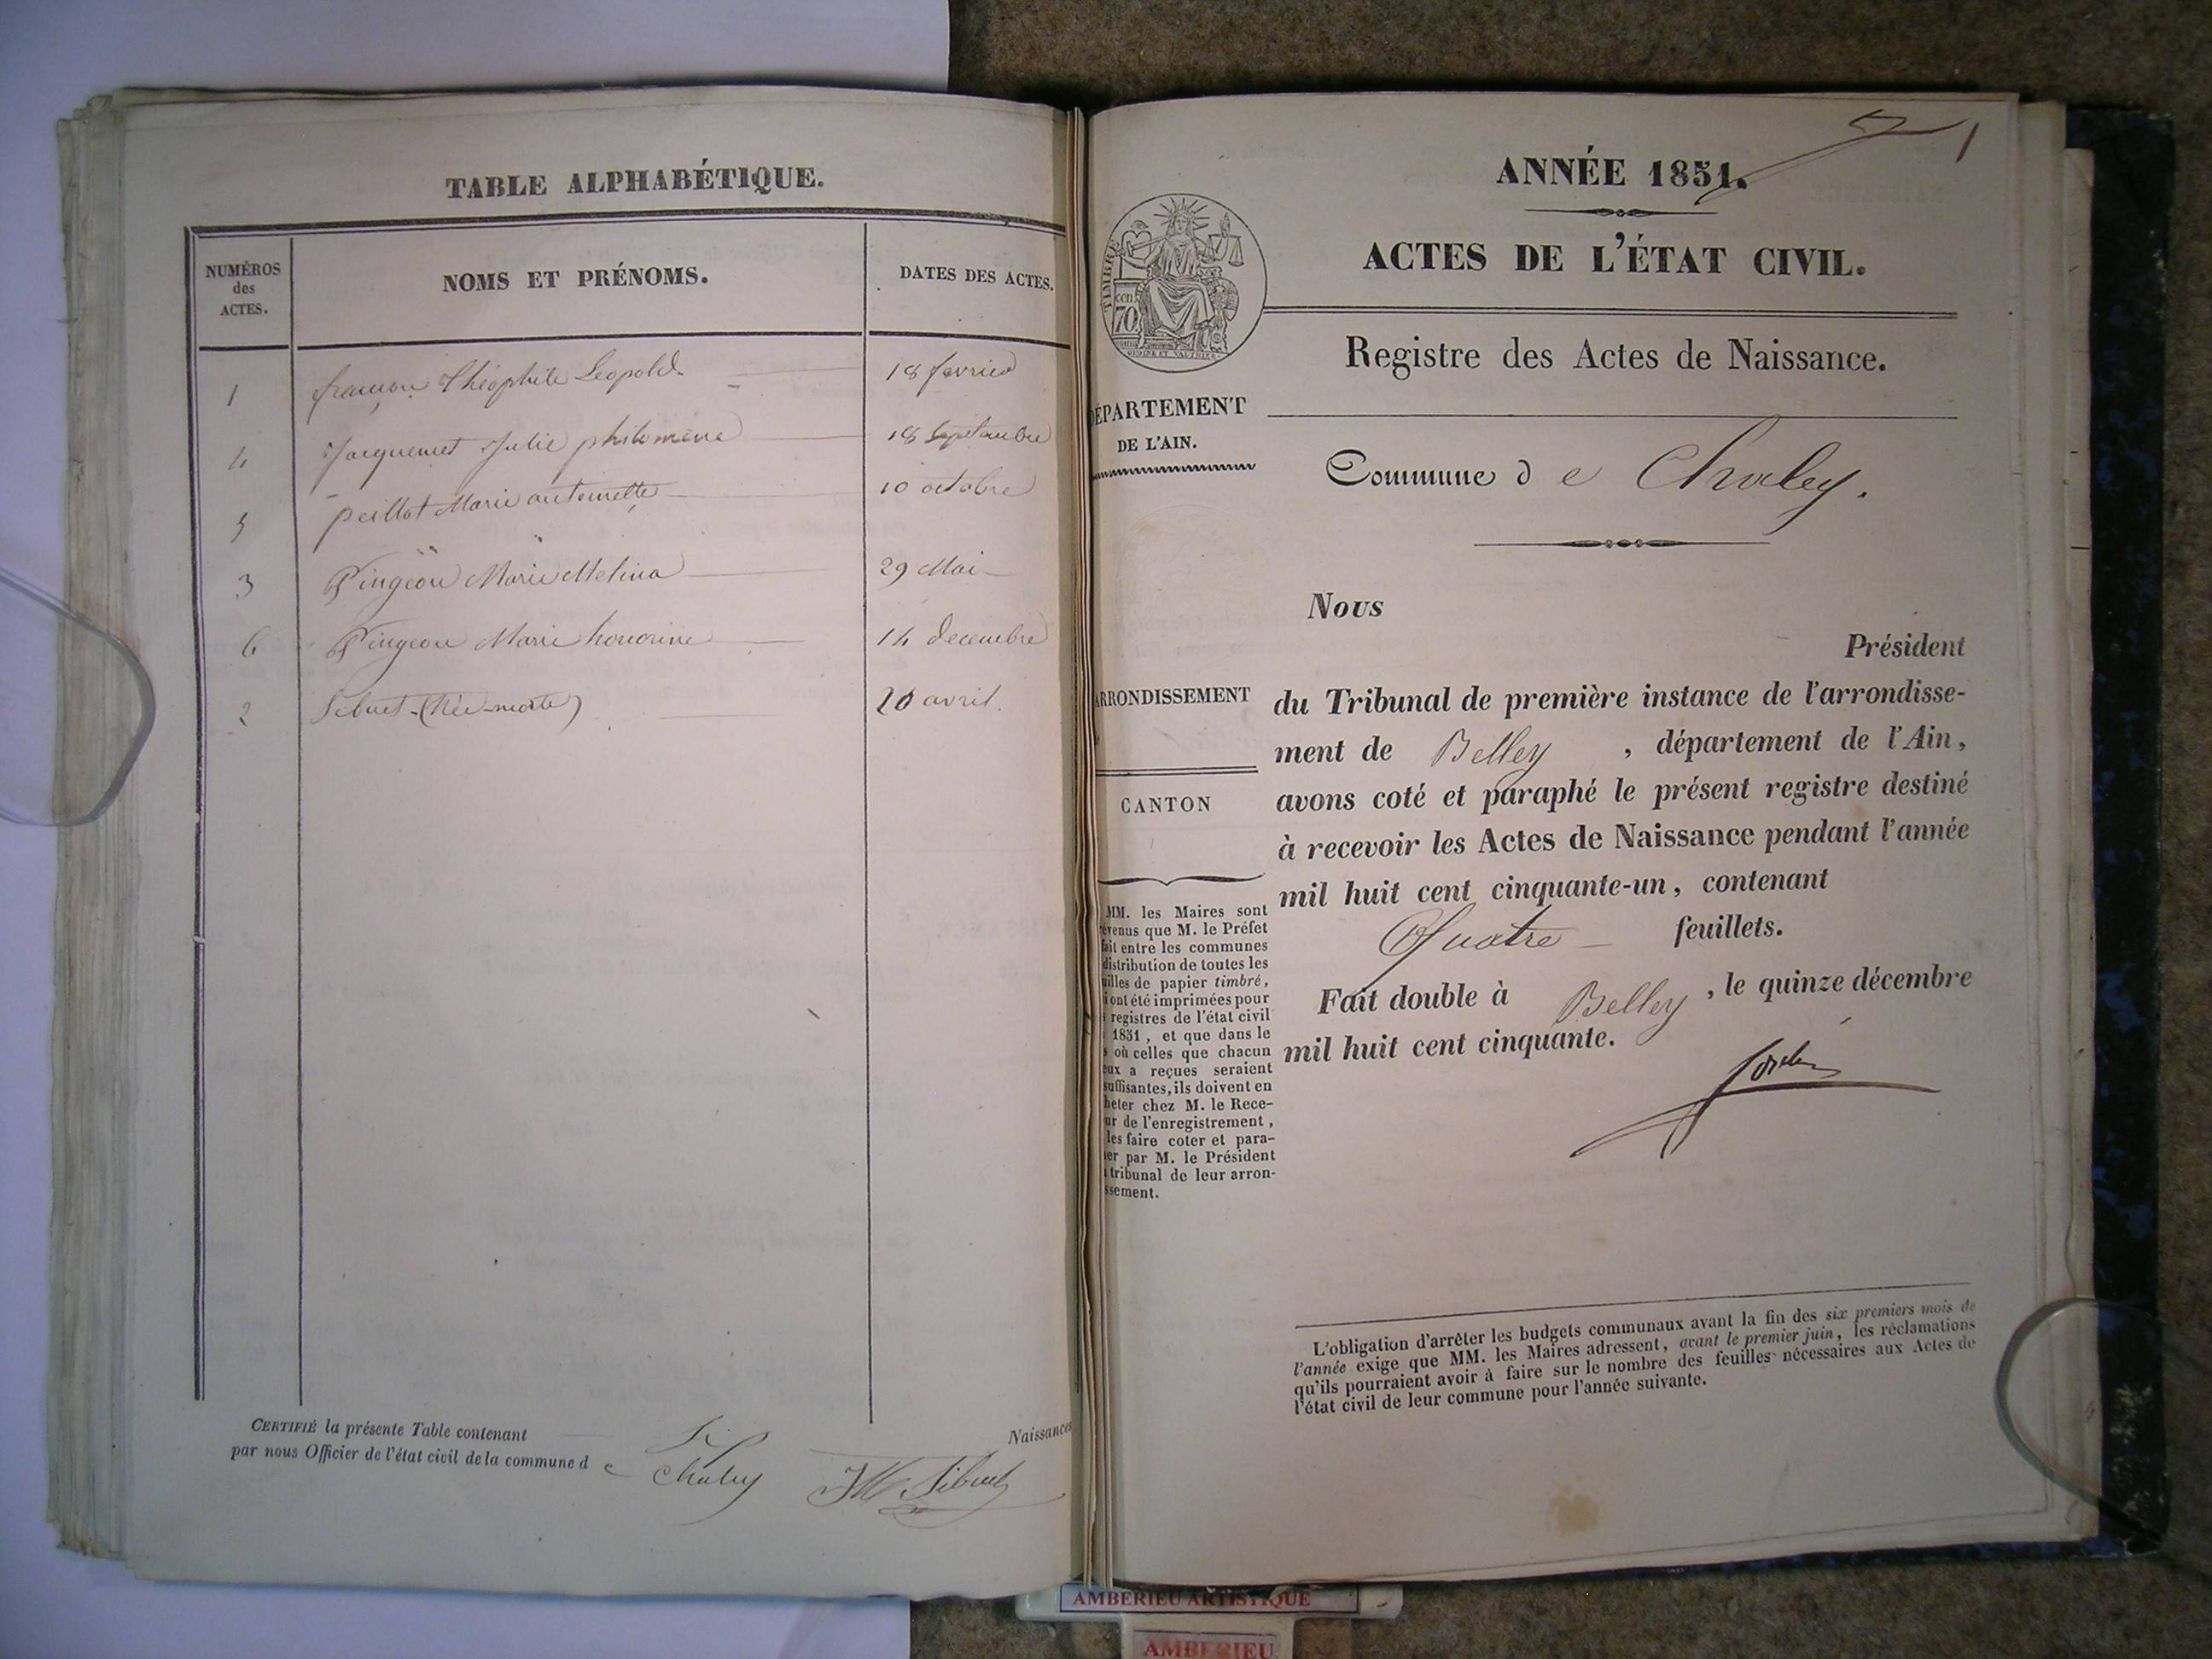 TABLE ALPHABÉTIQUE.
NUMÉROS
des
ACTES.
NOMS ET PRÉNOMS.
DATES DES ACTES.
1 Théophile Léopold 18 fevrier
4 Jacquemet Julie philomène 18 Septembre
5 peillot Marie antoinette 10 octobre
3 Pingeon Marie Melina 29 Mai
6 Pingeon Marie honorine 14 decembre
2 Sibuet (Née-morte) 20 avril.
CERTIFIÉ la présente Table contenant
Naissances
par nous Officier de l'état civil de la commune d e Chaley
Sibuet
1
ANNÉE 1851.
ACTES DE L'ÉTAT CIVIL.
TIMBRE
cen.
70.
Registre des Actes de Naissance.
DÉPARTEMENT
DE L'AIN.
Commune d e Chaley.
Nous
Président
ARRONDISSEMENT
du Tribunal de première instance de l'arrondisse-
ment de Belley , département de l'Ain,
avons coté et paraphé le présent registre destiné
CANTON
à recevoir les Actes de Naissance pendant l'année
mil huit cent cinquante-un, contenant
Quatre feuillets.
Fait double à Belley , le quinze décembre
mil huit cent cinquante.
MM. les Maires sont
évenus que M. le Préfet
fait entre les communes
distribution de toutes les
uilles de papier timbré,
i ont été imprimées pour
registres de l'état civil
1851, et que dans le
s où celles que chacun
eux a reçues seraient
suffisantes, ils doivent en
heter chez M. le Rece-
ur de l'enregistrement,
les faire coter et para-
er par M. le Président
tribunal de leur arron-
ssement.
L'obligation d'arrêter les budgets communaux avant la fin des six premiers mois de
l'année exige que MM. les Maires adressent, avant le premier juin, les réclamations
qu'ils pourraient avoir à faire sur le nombre des feuilles nécessaires aux Actes de
l'état civil de leur commune pour l'année suivante.
AMBERIEU ARTISTIQUE
AMBERIEU